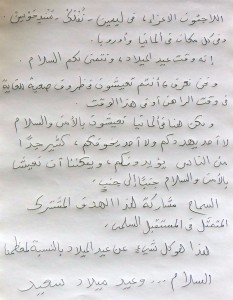 اللاجئون الأعزاء، في ليبسن - تُنكُ - تسدوفيس
وفي كل مكان في ألمانيا وأوروبا.
إنه وقت عيد الميلاد، ونتمنى لكم السلام.
وفي نعرف، أنتم تعيشون في ظروف صعبة للغاية
في وقت الراهن أو في هذا الوقت.
ولكن هنا في ألمانيا تعيشون بالأمن والسلام
لا أحد يهددكم ولا أحد يخونكم، كثير جدًا
من الناس يؤيدونكم، ويمكننا أن نعيش
بالأمن والسلام جنبًا إلى جنب.
السماح مشاركة لهذا الهدف المشترك
المتمثل في المستقبل السلمي.
لهذا هو كل شيء عن عيد الميلاد بالنسبة لمعظمنا
السلام... وعيد ميلاد سعيد